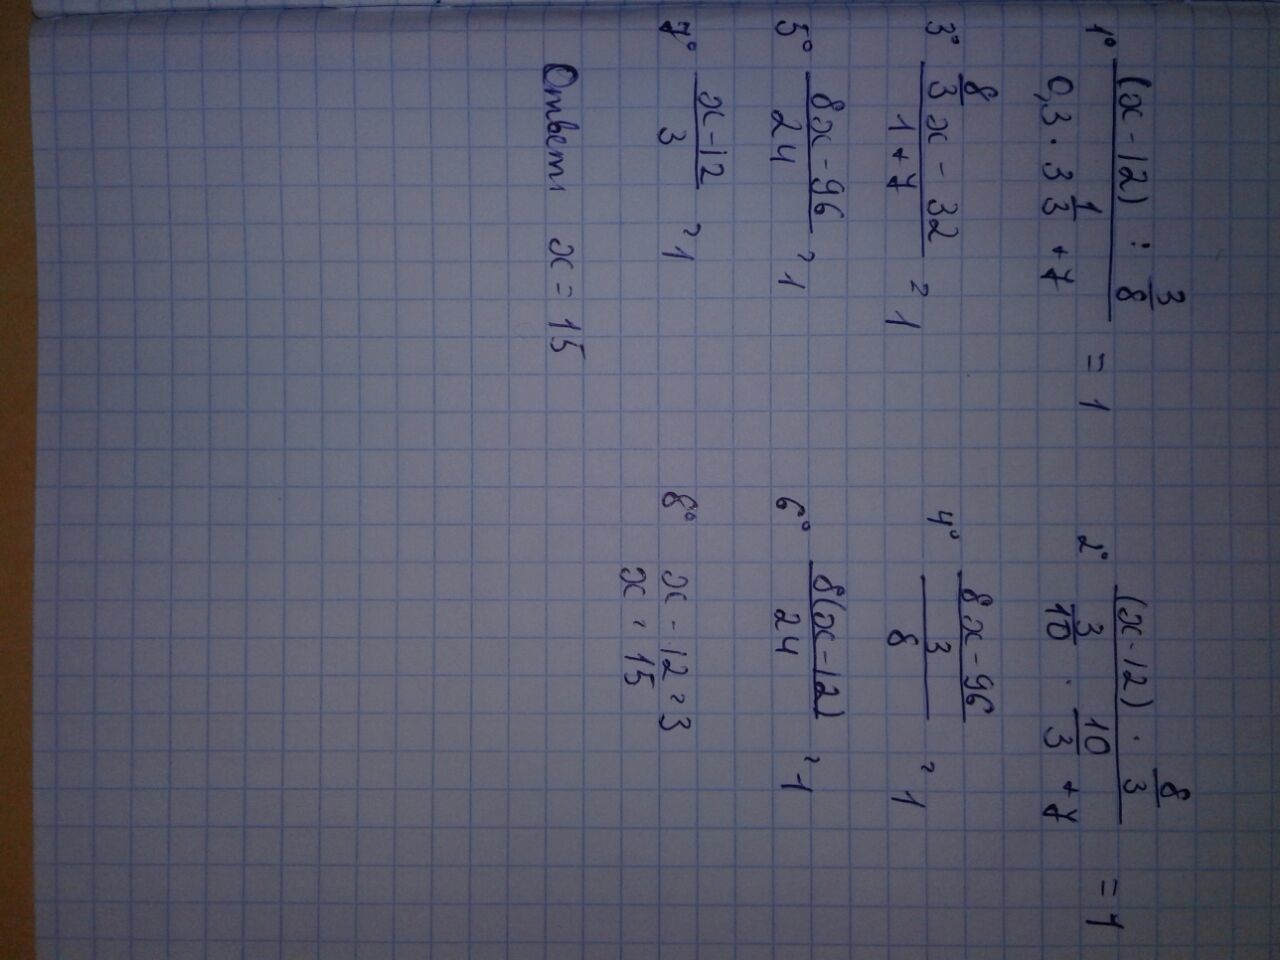 1° (x-12) : 3/8 / 0,3 · 3 1/3 + 7 = 1
2° (x-12) · 8/3 / 3/10 · 10/3 + 7 = 1
3° 8/3 x - 32 / 1+7 = 1
4° 8x-96 / 3 / 8 = 1
5° 8x-96 / 24 = 1
6° 8(x-12) / 24 = 1
7° x-12 / 3 = 1
8° x-12=3
x=15
Ответ: x=15